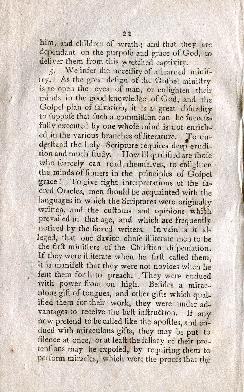 22
him, and children of wrath; and that they are
dependant on the purpose and grace of God, to
deliver them from this wretched captivity.
5. We infer the necessity of a learned minis-
try. As the great design of the Gospel ministry
is to open the eyes of man, or enlighten their
minds in the good knowledge of God, and the
Gospel plan of salvation, it is a great absurdity
to suppose that such a commission can be success-
fully executed by one whose mind is not enrich-
ed in the various branches of literature. To un-
derstand the holy Scripture requires deep erudi-
tion and much study. How ill qualified are those
who scarcely can read themselves, to enlighten
the minds of sinners in the principles of Gospel
grace! To give right interpretations of the sa-
cred Oracles, men should be acquainted with the
languages in which the Scriptures were originally
written, and the customs and opinions which
prevailed in that age, and which are frequently
noticed by the sacred writers. In vain is it al-
leged, that our Savior chose illiterate men to be
the first ministers of the Christian dispensation.
If they were illiterate when he first called them,
it is manifest that they were not novices when he
sent them forth to preach. They were endued
with power from on high. Besides a mirac-
ulous gift of tongues, and other gifts which qual-
ified them for their work, they were under ad-
vantages to receive the best instruction. If any
now pretend to be called like the apostles, and en-
dued with miraculous gifts, they may be put to
silence at once, or at least the falsity of their pre-
tensions may be exposed, by requiring them to
perform miracles, which were the proofs that the